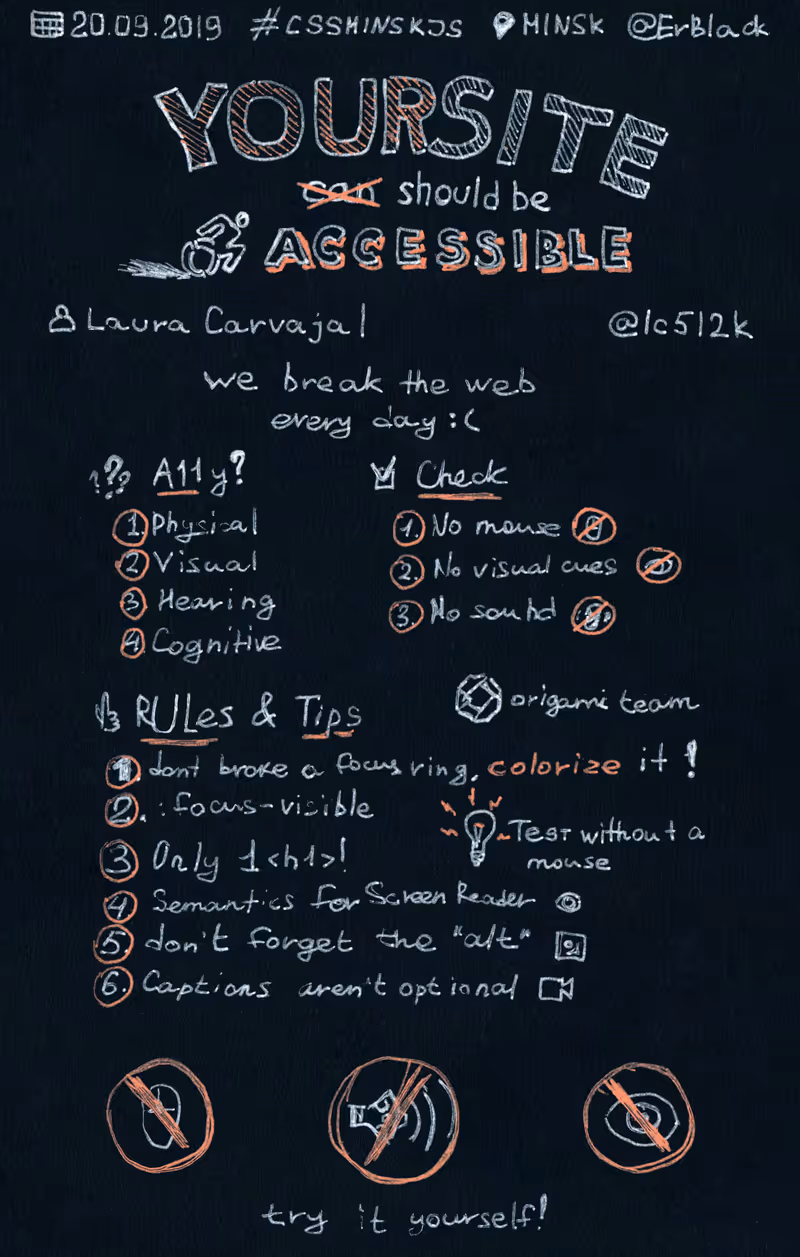 20.09.2019 #CSSMINSKJS MINSK @ErBlack
YOUR SITE
can should be
ACCESSIBLE
Laura Carvajal @lc512k
we break the web
every day :(
??? A11y?
1. Physical
2 Visual
3 Hearing
4 Cognitive
Check
1. No mouse
2. No visual cues
3. No sound
RULes & Tips
origami team
1. dont broke a focus ring, colorize it !
2. :focus-visible
Test without a
mouse
3 Only 1 <h1>!
4 Semantics for Screen Reader
5 don't forget the "alt"
6. Captions aren't optional
try it yourself!